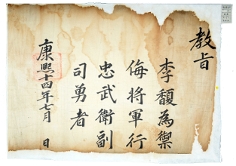 教旨
李馥為禦
侮將軍行
忠武衛副
司勇者
康熙十四年七月　日